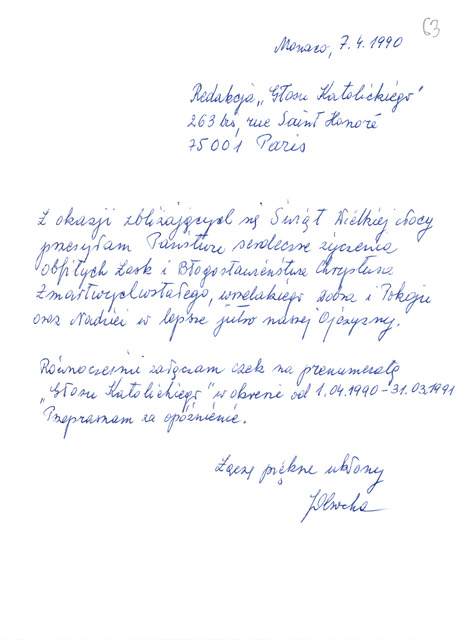 63
Monaco, 7.4.1990
Redakcja „Głosu Katolickiego"
263 bis, rue Saint Honoré
75001 Paris
Z okazji zbliżających się Świąt Wielkiej Nocy
przesyłam Państwu serdeczne życzenia
obfitych Łask i Błogosławieństwa Chrystusa
Zmartwychwstałego, wszelakiego dobra i Pokoju
oraz Nadziei w lepsze jutro naszej Ojczyzny.
Równocześnie załączam czek na prenumeratę
„Głosu Katolickiego" w okresie od 1.04.1990 – 31.03.1991
Przepraszam za opóźnienie.
Łączę piękne ukłony